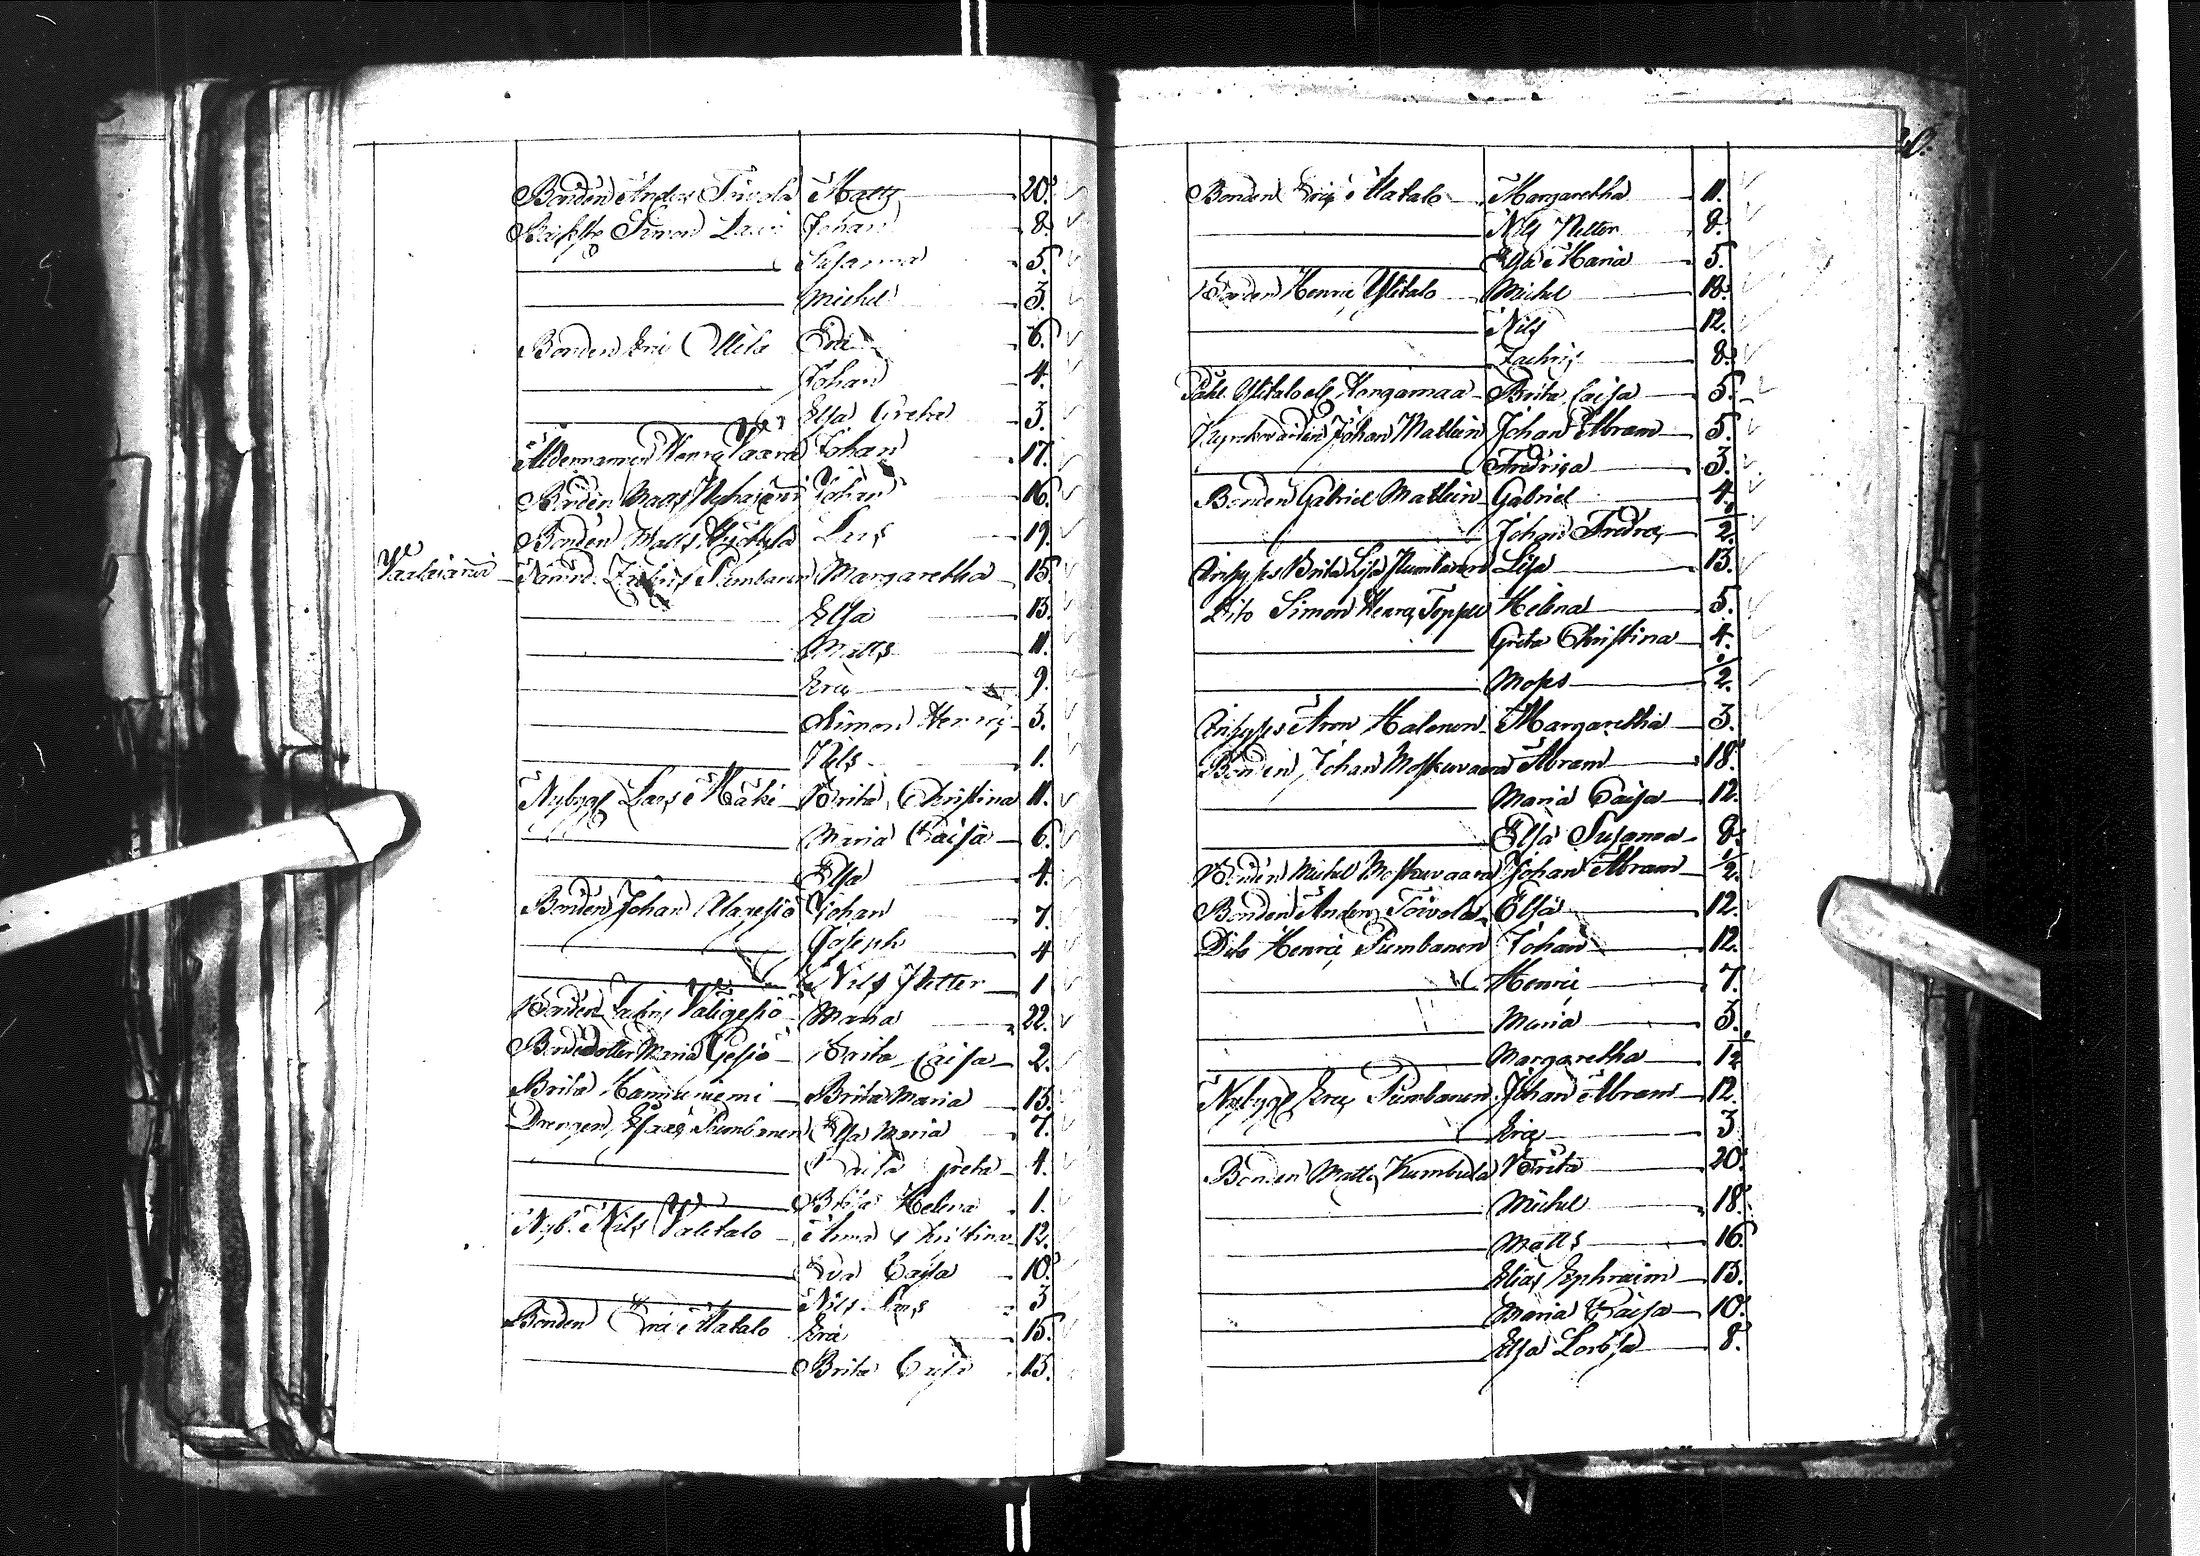 20.
Bonden Anders Toivola Matts 20.
Simon Johan 8.
Susanna 5.
Michel 3.
Bonden Eric 6.
Johan 4.
Elsa Greta 3.
Åldermannen Henric Vaara Johan 17.
Bonden Matts Johan 16.
Bonden Matts Lars 19.
Vaalajärvi Nämnd. Zachris Pumbanen Margaretha 15.
Elsa 13.
Matts 11.
Eric 9.
Simon Henric 3.
Nils 1.
Nybygg. Lars Mäki Brita Christina 11.
Maria Caisa 6.
Elsa 4.
Bonden Johan Alagesiö Johan 7.
Joseph 4
Nils Petter 1
Bonden Zachris Väligesiö Maria 22.
Bondedotter Maria Gesiö Brita Caisa 2.
Brita Haminiemi Brita Maria 15.
Drengen Esaias Pumbanen Elsa Maria 7.
Brita Greta 4.
Brita Helena 1.
Nyb. Nils Valitalo Anna Christina 12.
Eva Cajsa 10.
Nils Lars 3
Bonden Eric Alatalo Eric 15.
Brita Cajsa 13.
Bonden Eric Alatalo Margaretha 11.
Nils Petter 8.
Elsa Maria 5.
Bonden Henric Ylitalo Michel 18.
Nils 12.
Zachris 8.
Ylitalo Kongamaa Brita Caisa 5.
Johan Matlein Johan Abram 5.
Fredrica 3.
Bonden Gabriel Matlein Gabriel 4.
Johan Fredric 1/2.
Inhyses Brita Lisa Pumbanen Lisa 13.
Dito Simon Henric Toppe Helena 5.
Greta Christina 4.
Moses 1/2.
Inhyses Aron Halonen Margaretha 3.
Bonden Johan Moskuvaara Abram 18.
Maria Caisa 12.
Elsa Susanna 8.
Bonden Michel Moskuvaara Johan Abram 1/2.
Bonden Anders Toivola Elsa 12.
Dito Henric Pumbanen Johan 12.
Henric 7.
Maria 3.
Margaretha 1/2
Nybygg. Eric Pumbanen Johan Abram 12.
Eric 3
Bonden Matts Kumbula Brita 20.
Michel 18.
Matts 16.
Elias Ephraim 13.
Maria Caisa 10.
Elsa Lovisa 8.